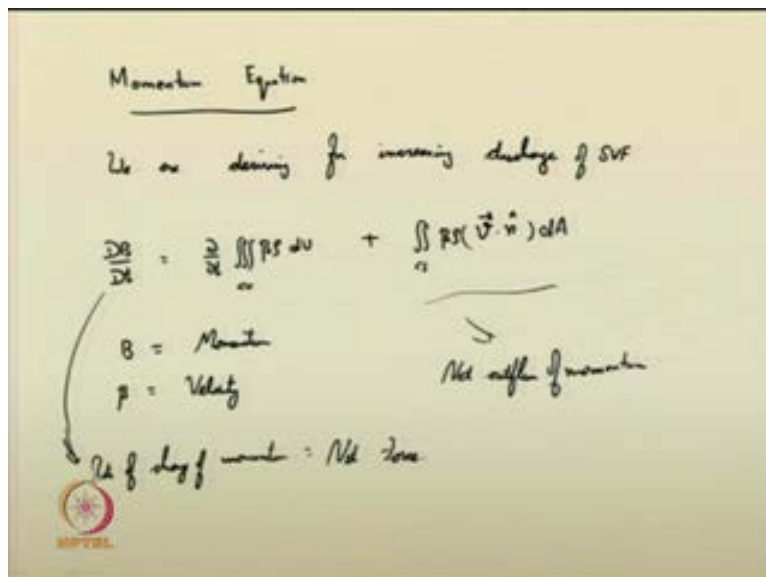 Momentum Equation
We are deriving for increasing discharge of SVF
DB/Dt = ∂/∂t ∭_cv βρ dV + ∬_cs βρ(V⃗·n̂) dA
B = Momentum
β = Velocity
Net outflow of momentum
Rate of change of momentum = Net Force
NPTEL